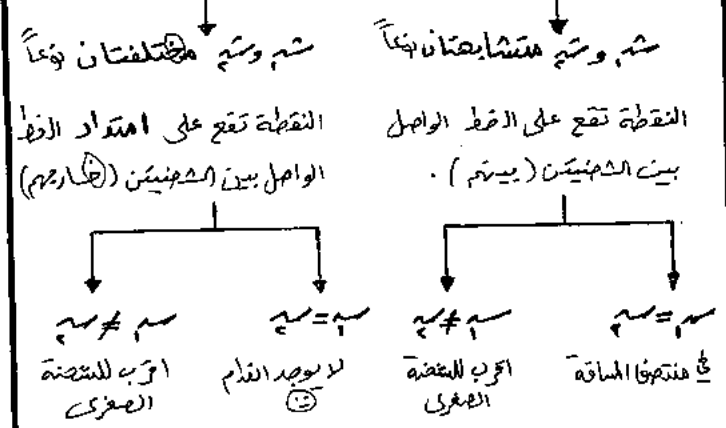 شـ١ و شـ٢ متشابهتان نوعاً
النقطة تقع على الخط الواصل
بين الشحنيتن (بينهم).
سـ١ = سـ٢
في منتصف المسافة
سـ١ ≠ سـ٢
اقرب للشحنة
الصغرى
شـ١ و شـ٢ مختلفتان نوعاً
النقطة تقع على امتداد الخط
الواصل بين الشحنيتن (خارجهم)
سـ١ = سـ٢
لا يوجد انعدام
سـ١ ≠ سـ٢
اقرب للشحنة
الصغرى